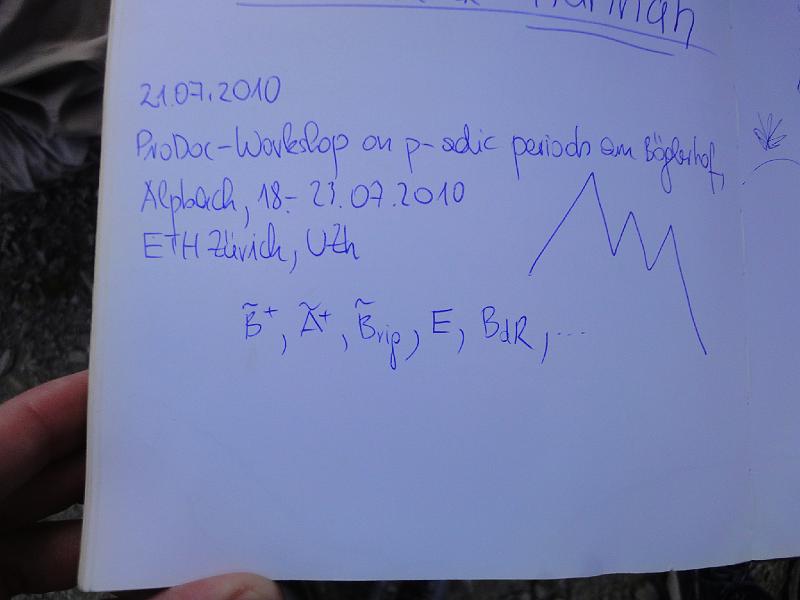 Hannah
21.07.2010
ProDoc-Workshop on p-adic periods am Böglerhof,
Alpbach, 18.- 23.07.2010
ETH Zürich, UZh
B̃⁺, Ã⁺, B̃rig, E, BdR, ...